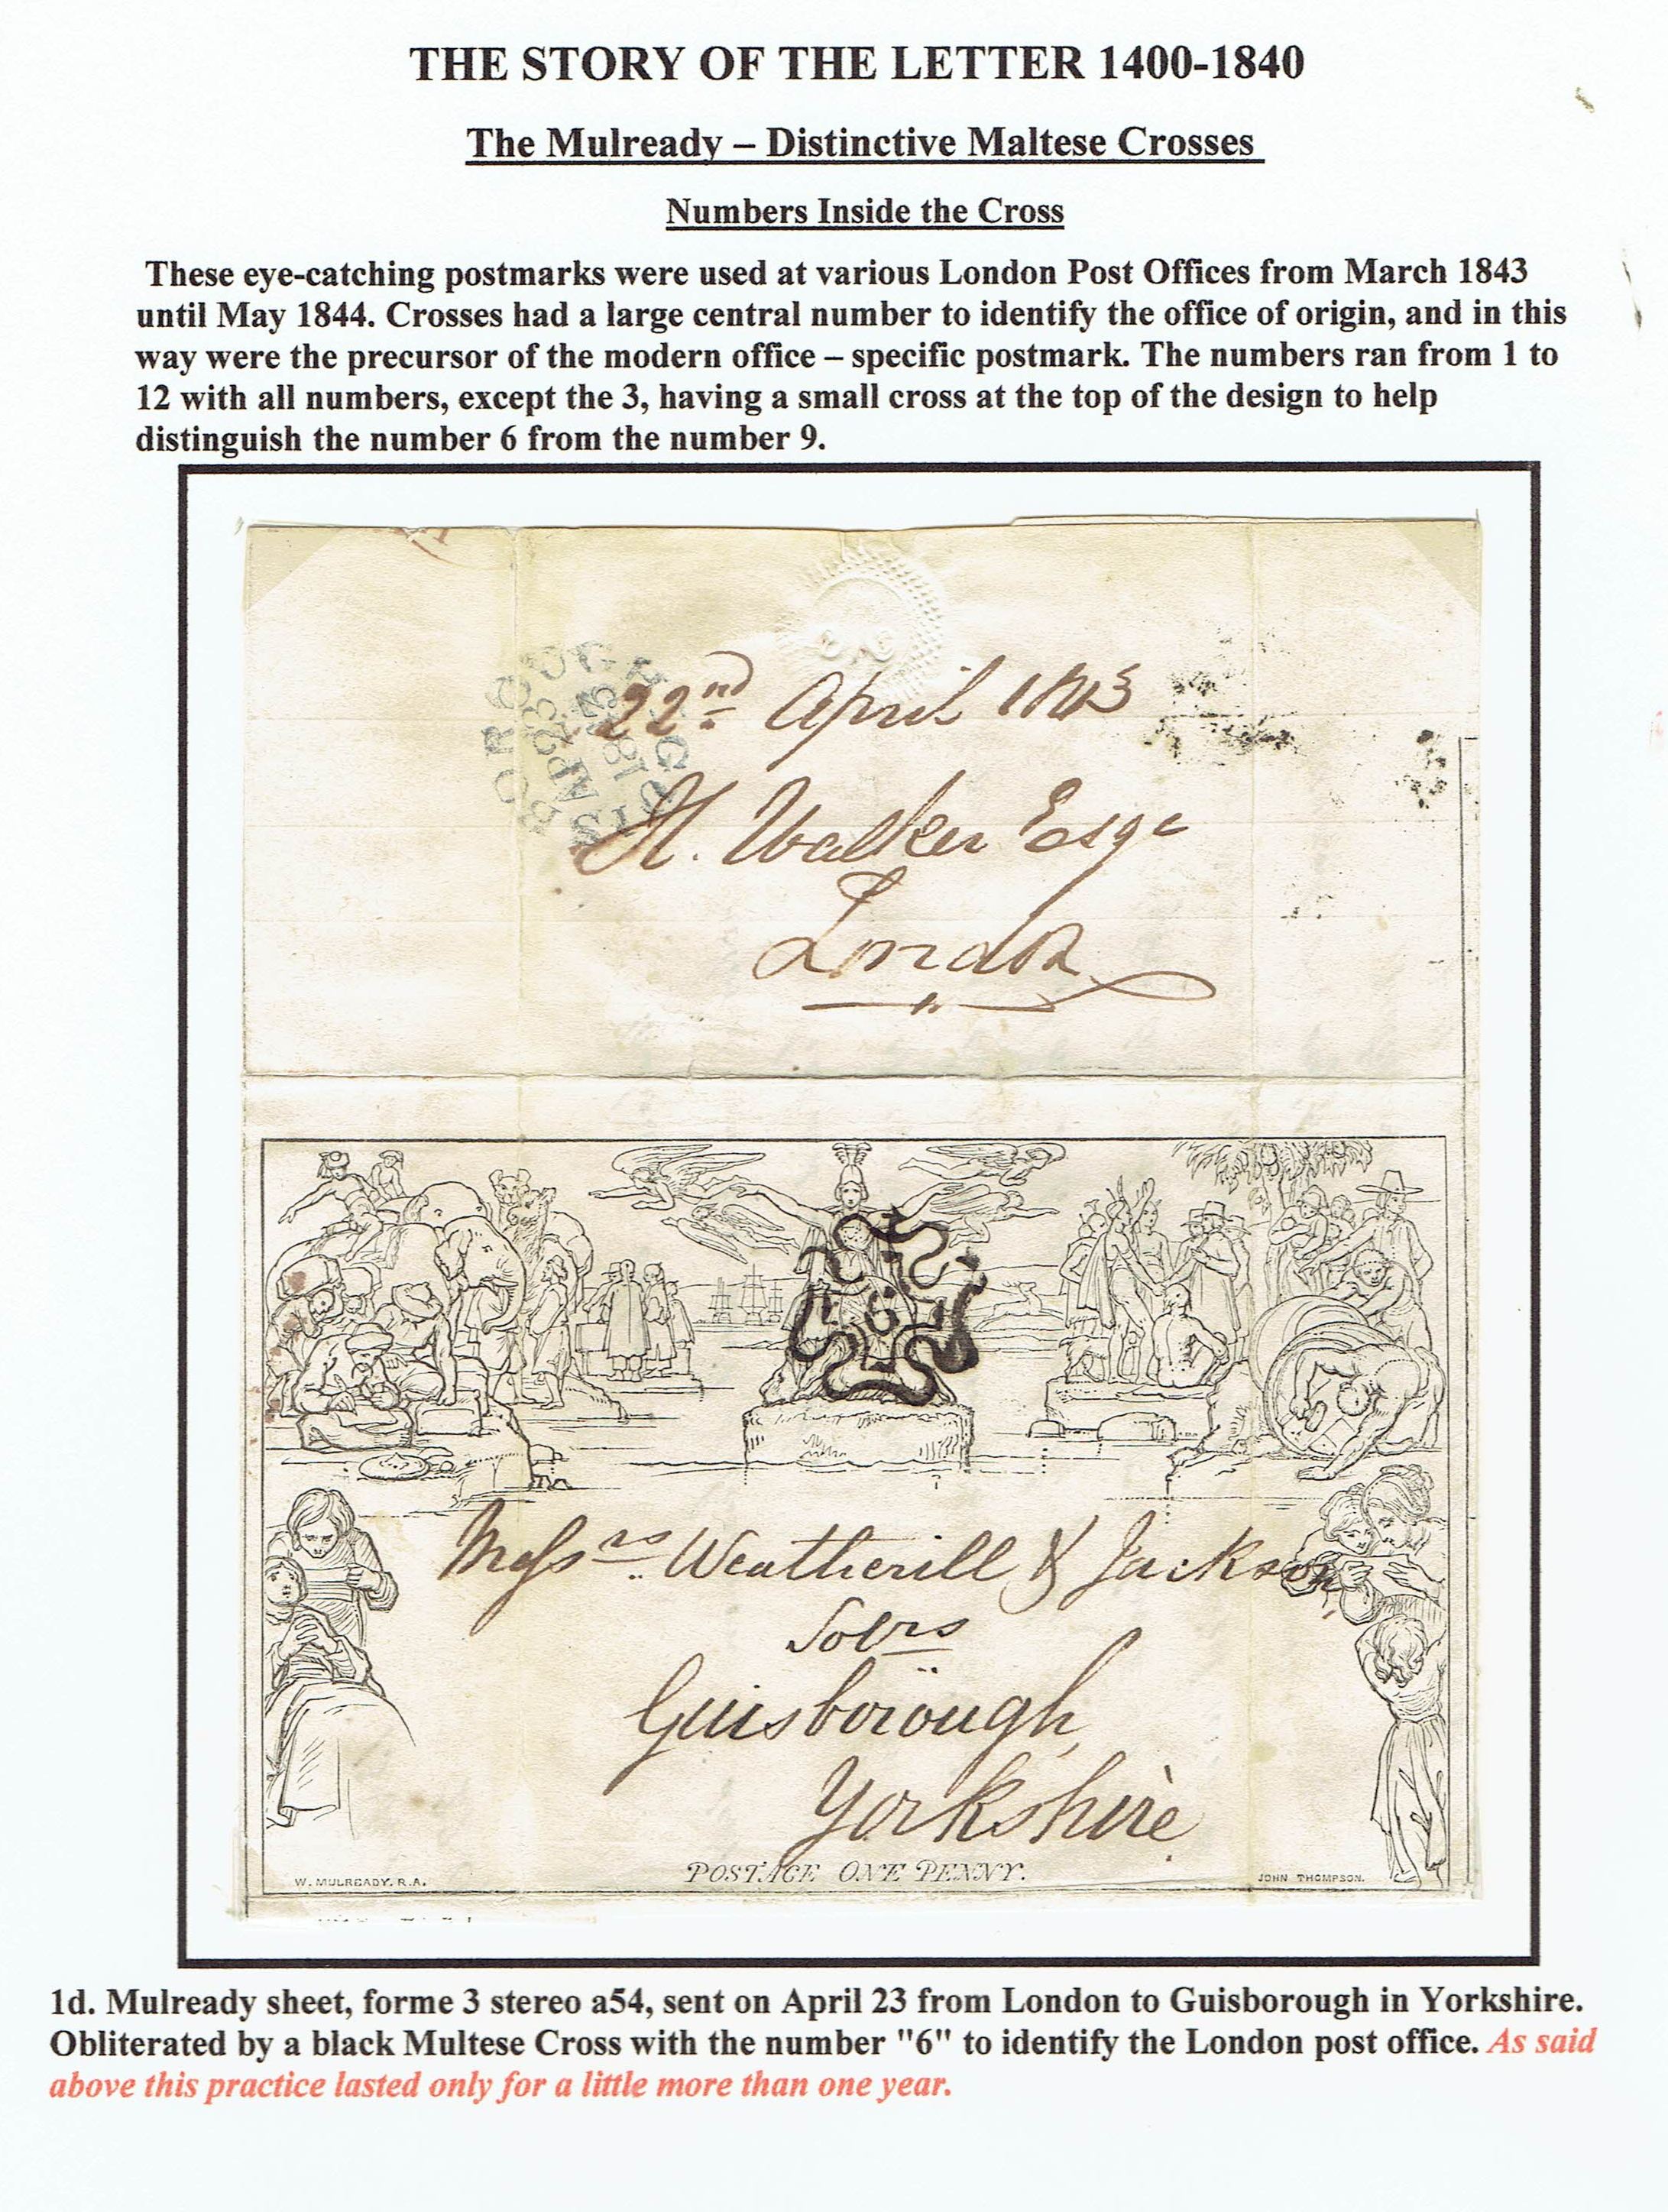 THE STORY OF THE LETTER 1400-1840
The Mulready – Distinctive Maltese Crosses
Numbers Inside the Cross
These eye-catching postmarks were used at various London Post Offices from March 1843
until May 1844. Crosses had a large central number to identify the office of origin, and in this
way were the precursor of the modern office – specific postmark. The numbers ran from 1 to
12 with all numbers, except the 3, having a small cross at the top of the design to help
distinguish the number 6 from the number 9.
22nd April 1843
H. Walker Esqe
London
6
Messrs Weatherill & Jackson
Solrs
Guisborough,
Yorkshire
POSTAGE ONE PENNY.
W. MULREADY. R.A.
JOHN THOMPSON.
1d. Mulready sheet, forme 3 stereo a54, sent on April 23 from London to Guisborough in Yorkshire.
Obliterated by a black Multese Cross with the number "6" to identify the London post office. As said
above this practice lasted only for a little more than one year.